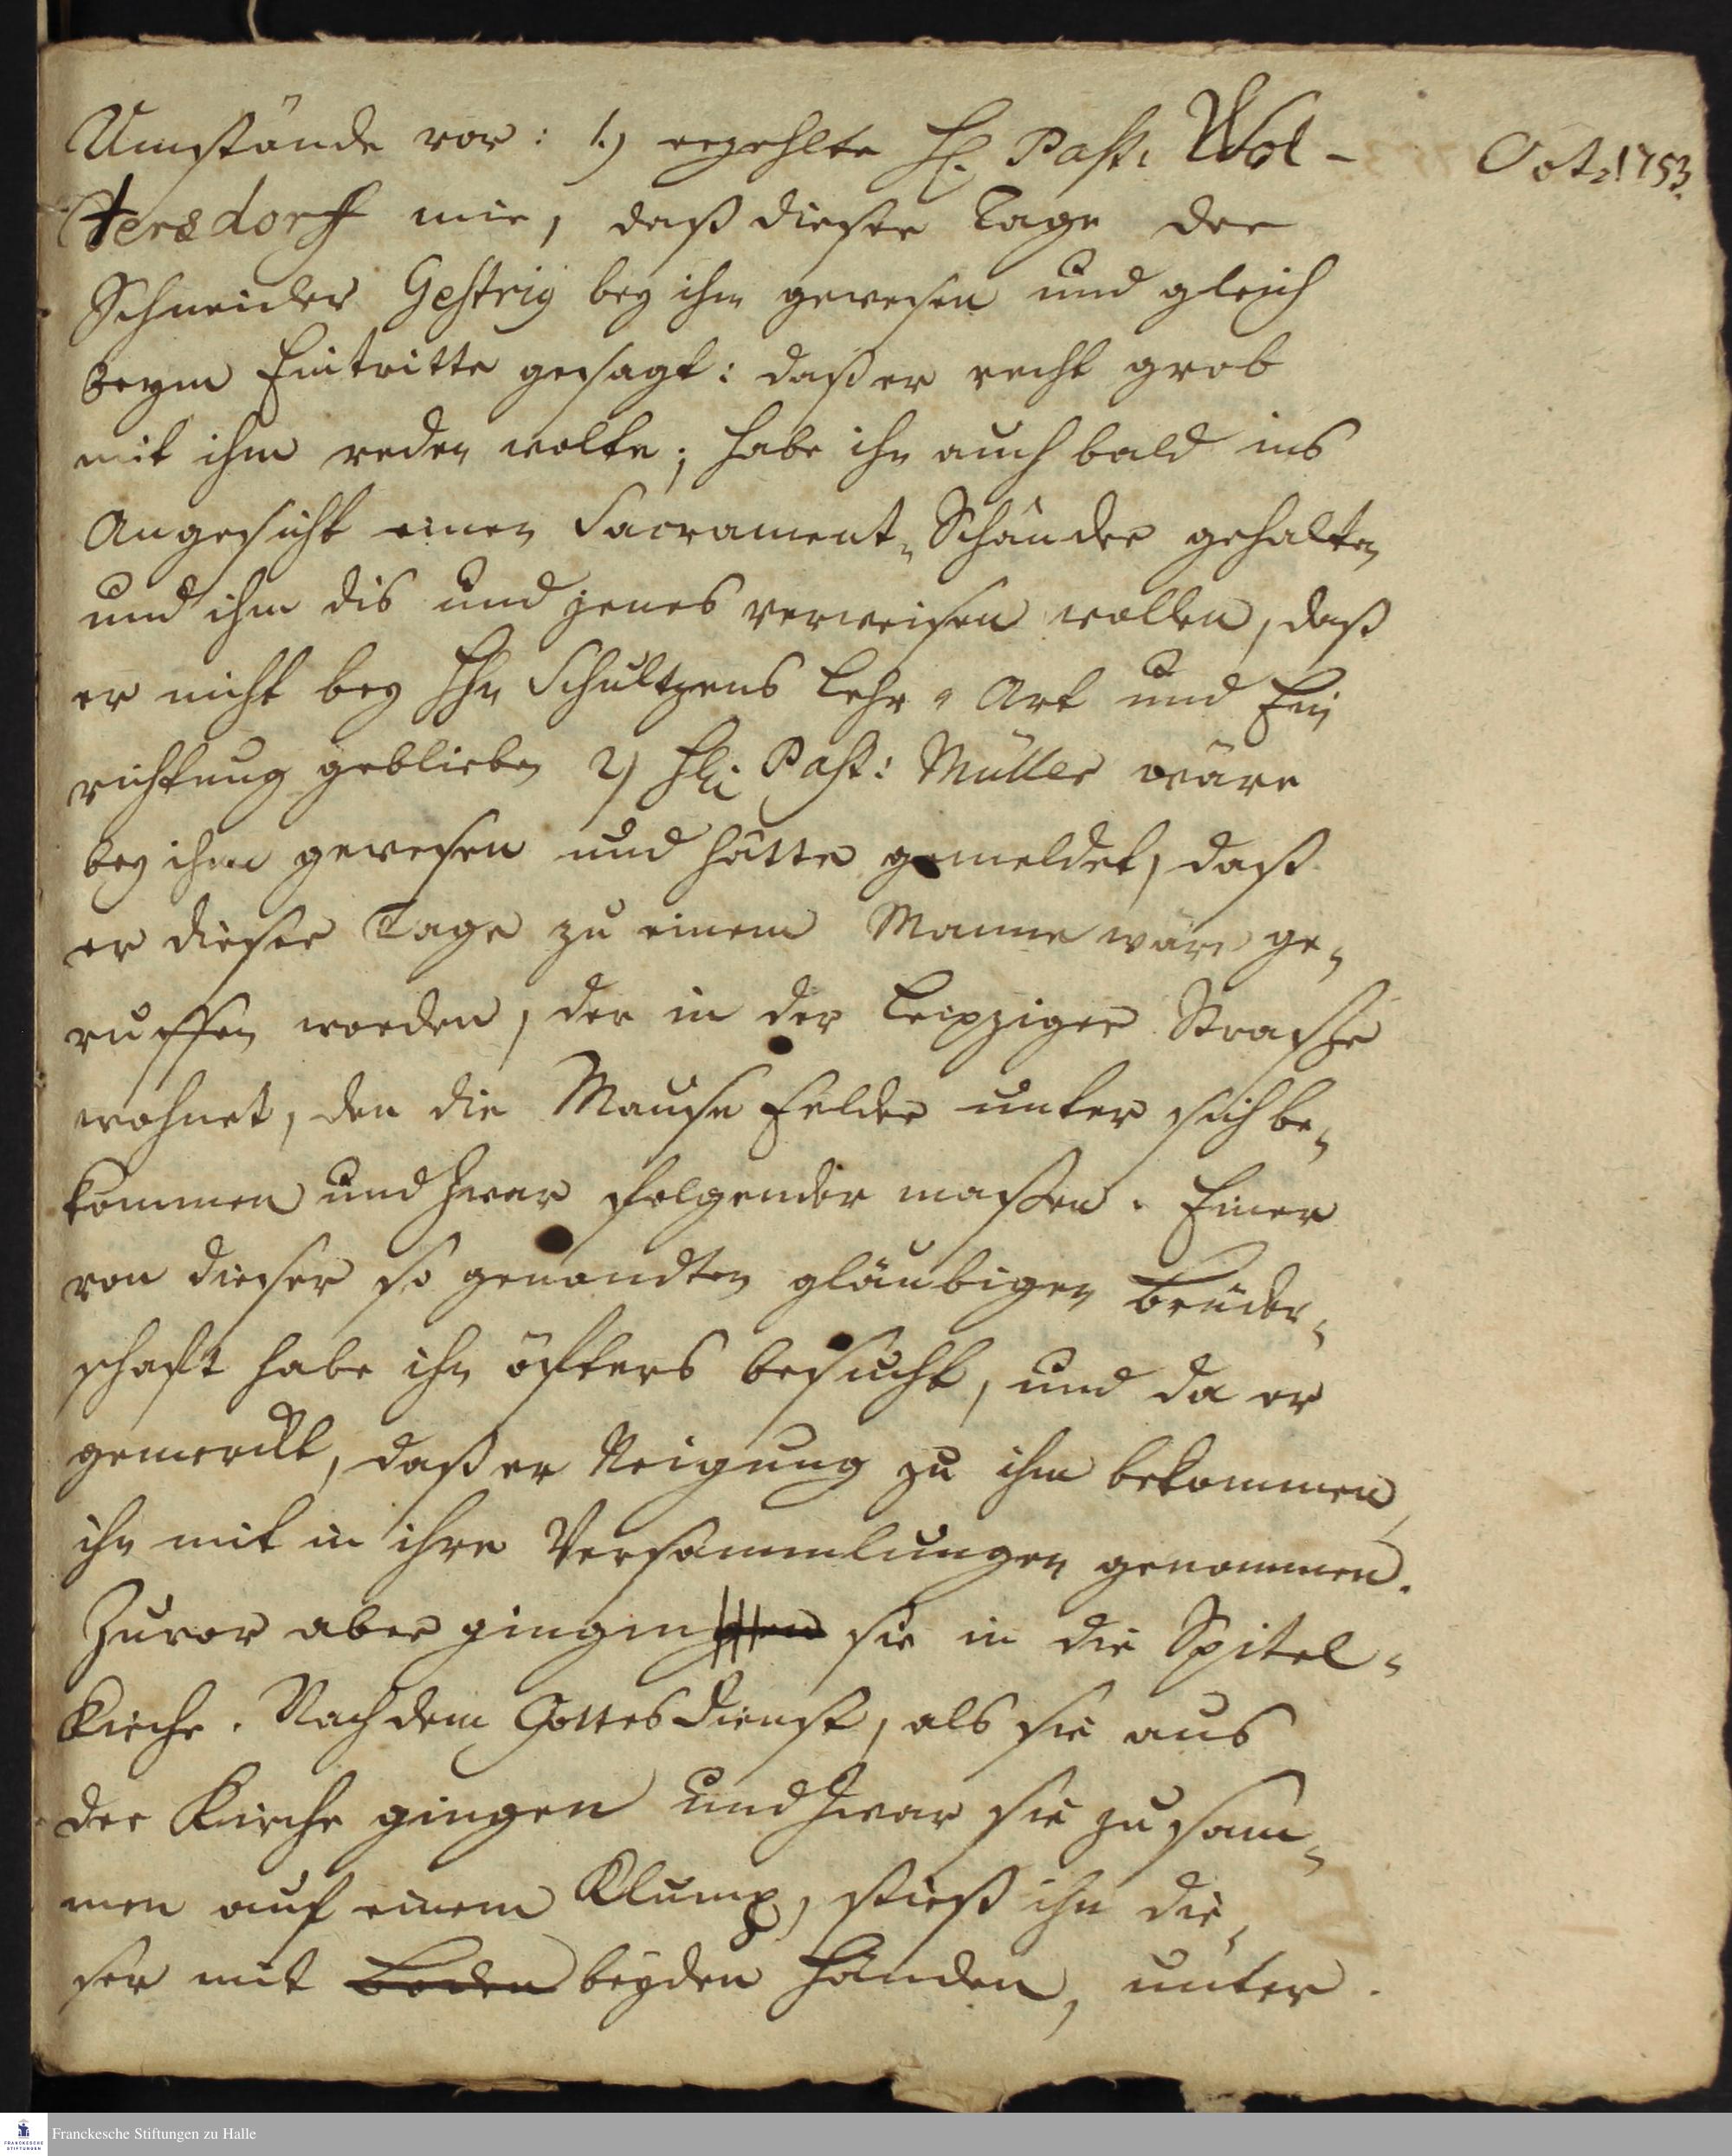 Umstände vor: 1.) erzehlte H. Past: Wol-
Oct. 1753.
tersdorff mir, daß dieser Tage der
Schneider Gestrig bey ihm gewesen und gleich
beym Eintritte gesagt: daß er recht grob
mit ihm reden wolte; habe ihn auch bald ins
Angesicht einen Sacrament-Schänder gehalten
und ihm dis und jenes verweisen wollen, daß
er nicht bey Hn Schultzens Lehr-Art und Ein
richtung geblieben 2) H. Past: Müller wäre
bey ihm gewesen und hätte gemeldet, daß
er dieser Tage zu einem Manne wäre ge-
ruffen worden, der in der Leipziger Strasse
wohnet, den die Mause Felder unter sich be-
kommen und zwar folgender massen. Einer
von dieser so genandten gläubigen Brüder-
schaft habe ihn öfters besucht, und da er
gemerckt, daß er Neigung zu ihm bekommen,
ihn mit in ihre Versammlungen genommen.
Zuvor aber gingen sie in die Spitel-
Kirche. Nach dem Gottesdienst, als sie aus
der Kirche gingen und zwar sie zusam-
men auf einem Klump, stieß ihn die-
ser mit Boden beyden Händen, unter
Franckesche Stiftungen zu Halle
FRANCKESCHE STIFTUNGEN